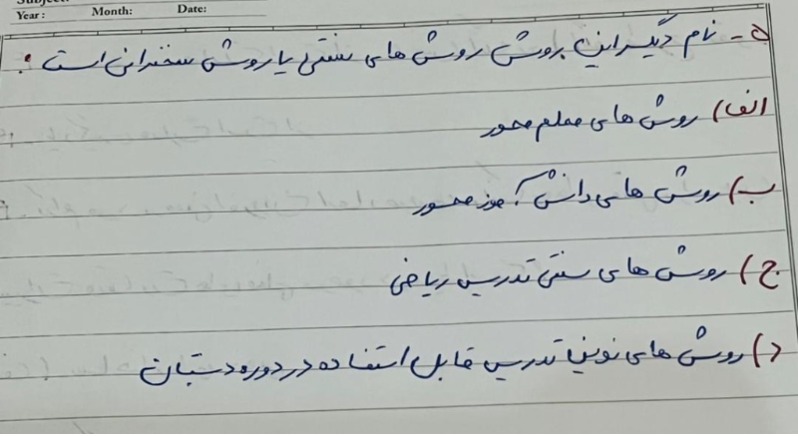 Year: Month: Date:
۵- نام دیگر این روش روش های سنتی یا روش سخنرانی است :
الف) روش های معلم محور
ب) روش های دانش آموز محور
ج) روش های سنتی تدریس ریاضی
د) روش های نوین تدریس قابل استفاده در دوره دبستان